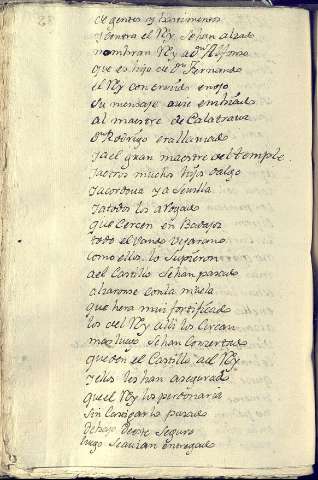 de gentes y bastimentos
y contra el Rey se han alzado
nombran Rey a Dn Alfonso
que es hijo de Dn Fernando
el Rey con crecido enojo
su mensaje avie embiado
al maestre de Calatrava
Dn Rodrigo era llamado
y a el gran maestre del temple
y a otros muchos hijos dalgo
y a cordova y a Sevilla
y a todos los a rogado
que cercen en Badajoz
todo el vando vejarano
como ellos lo supieron
a el Castillo se han pasado
alzaronse con la muela
que hera mui fortificada
los del Rey alli los cercan
mas luego se han consertado
que den el Castillo a el Rey
y ellos los han asegurado
que el Rey los perdonaria
sin castigar lo pasado
debajo de este seguro
luego se avian entregado